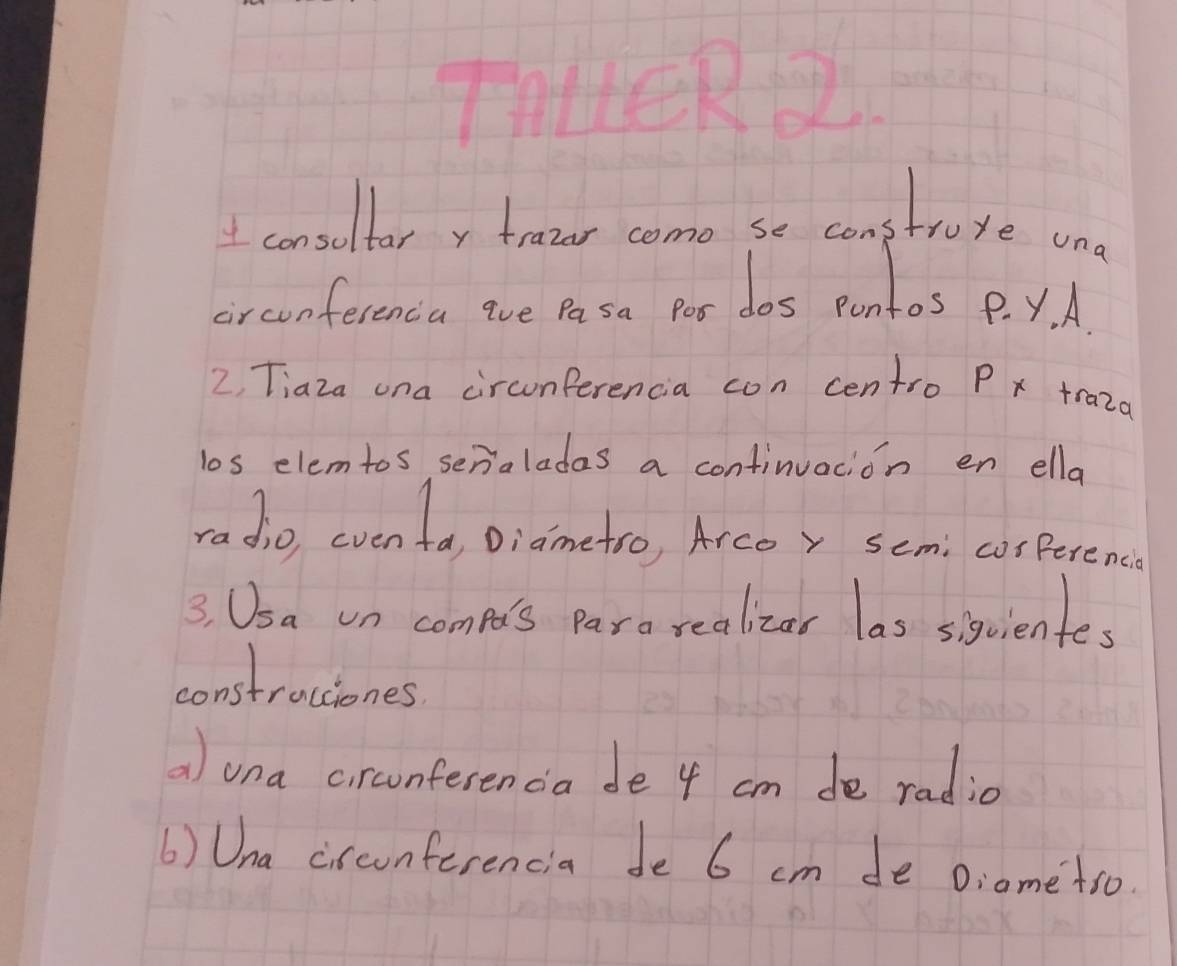 TALLER 2.
1 consultar y trazar como se construye una
circunferencia que Pasa Por dos puntos P. Y. A.
2. Tiaza una circunferencia con centro P y traza
los elemtos señaladas a continuación en ella
radio, cuenta, Diámetro, Arco y semi corferencia
3. Usa un compás Para realizar las siguientes
construcciones.
a) una circunferencia de 4 cm de radio
b) Una circunferencia de 6 cm de Diametro.